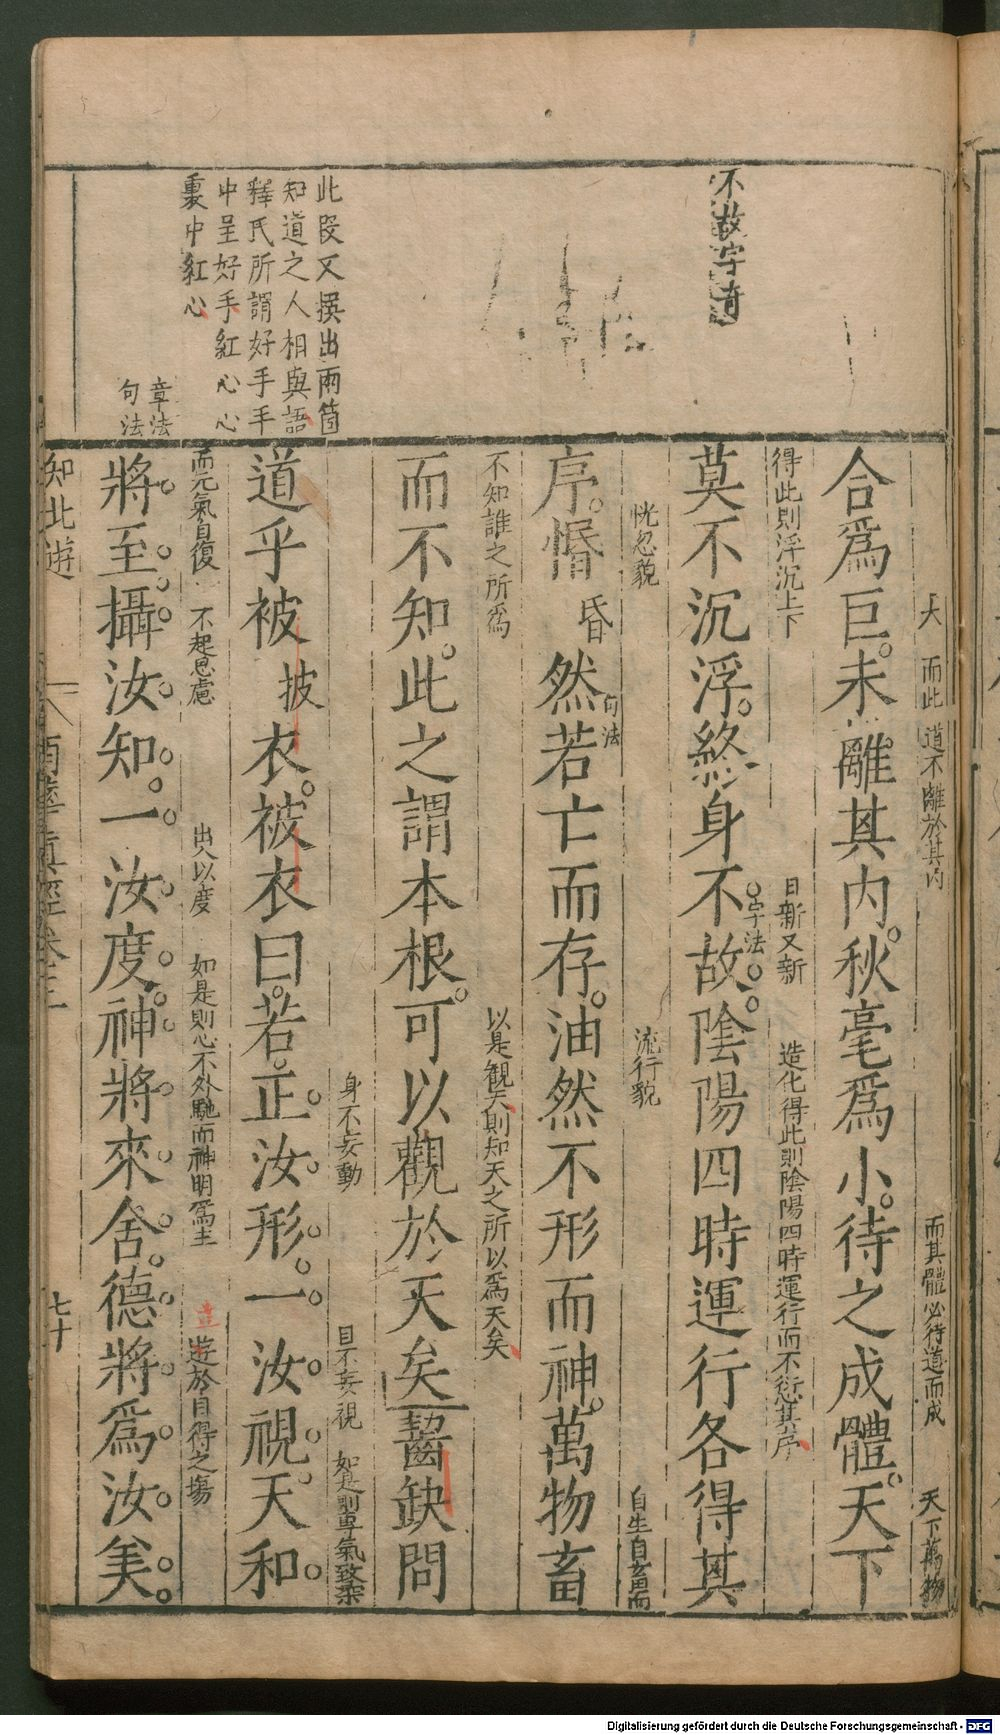 不故字奇
此段又撰出兩箇
知道之人相與語
釋氏所謂好手手
中呈好手紅心心
裏中紅心
章法
句法
大 而此道不離於其內 而其體必待道而成 天下萬物
合爲巨未離其內秋毫爲小待之成體天下
得此則浮沉上下 日新又新 造化得此則陰陽四時運行而不愆其序
莫不沉浮終身不故陰陽四時運行各得其
字法
恍忽貌 流行貌 自生自畜而
序惛昏然若亡而存油然不形而神萬物畜
句法
不知誰之所爲 以是觀天則知天之所以爲天矣
而不知此之謂本根可以觀於天矣齧缺問
身不妄動 目不妄視 如是則專氣致柔
道乎被披衣被衣曰若正汝形一汝視天和
而元氣自復 不起思慮 出入以度 如是則心不外馳而神明爲主 遊於自得之場
將至攝汝知一汝度神將來舍德將爲汝美
知北遊 南華真經卷三 七十
Digitalisierung gefördert durch die Deutsche Forschungsgemeinschaft - DFG